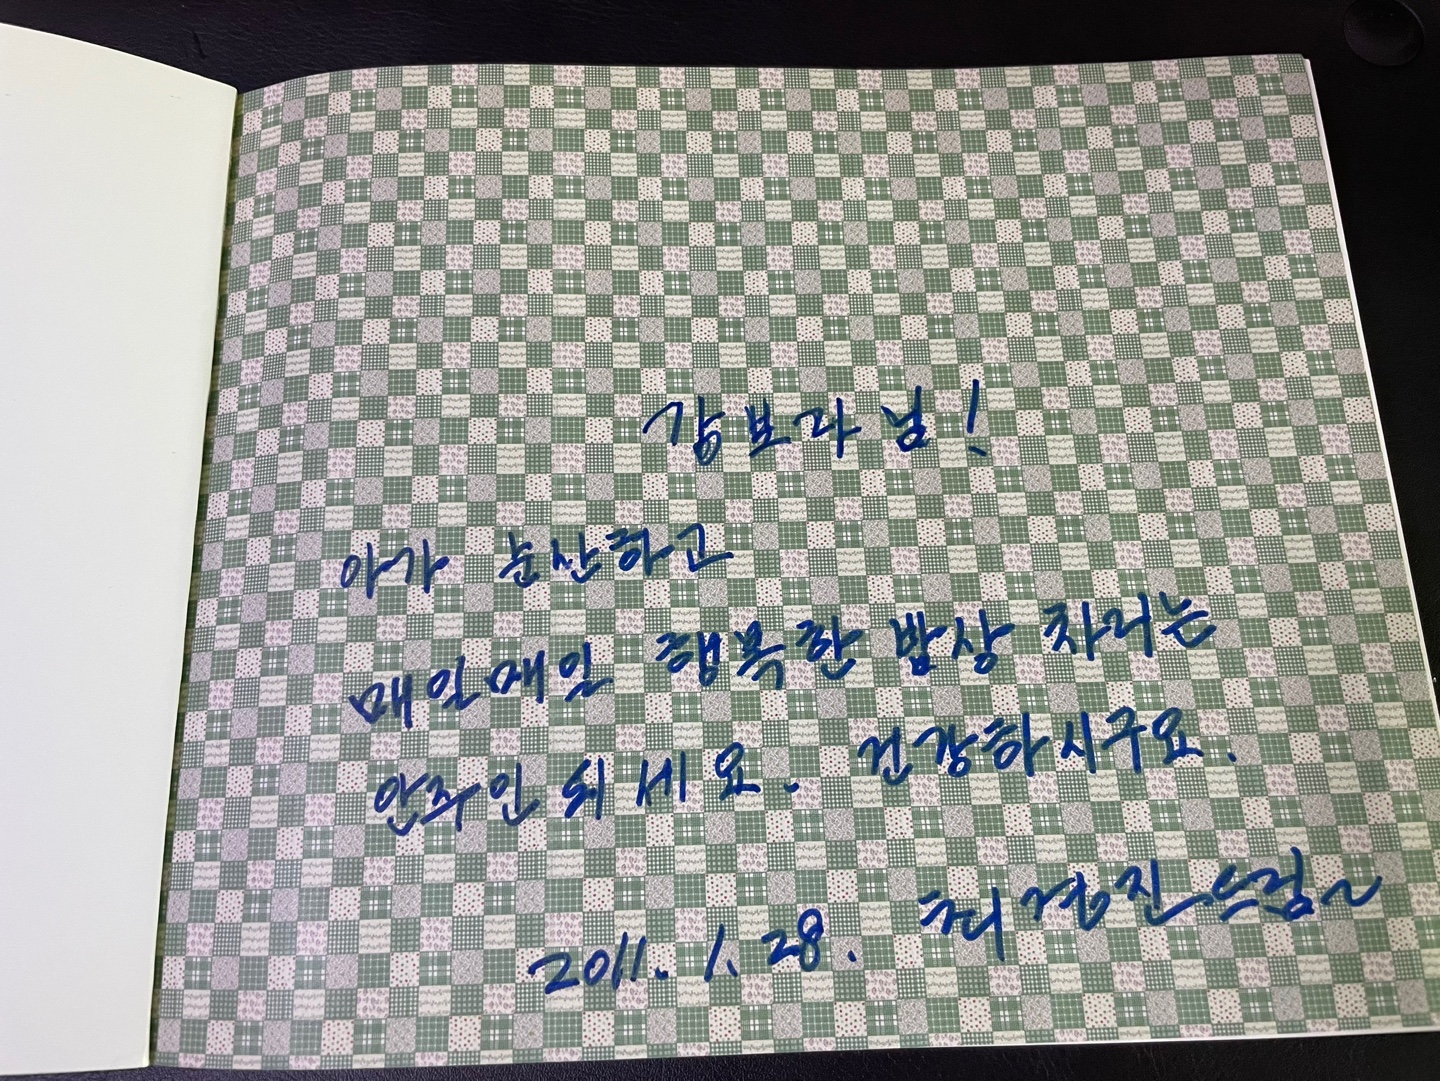 강보라님!
아가 순산하고
매일매일 행복한 밥상 차리는
안주인 되세요. 건강하시구요.
2011. 1. 28. 최경진 드림~